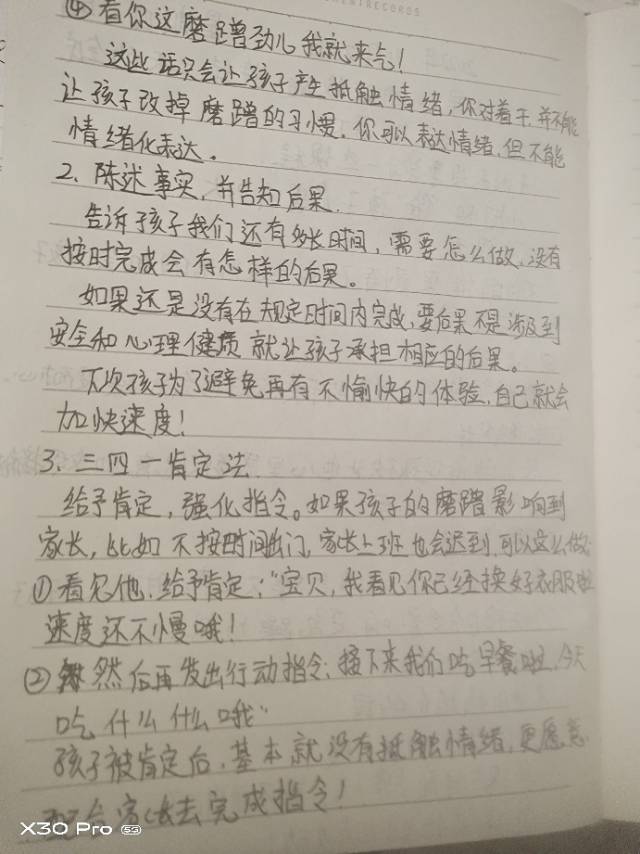 ENTRECORDS
④看你这磨蹭劲儿我就来气!
这些话只会让孩子产生抵触情绪,你对着干,并不能
让孩子改掉磨蹭的习惯.你可以表达情绪,但不能
情绪化表达。
2、陈述事实,并告知后果.
告诉孩子我们还有多长时间,需要怎么做,没有
按时完成会有怎样的后果。
如果还是没有在规定时间内完成,要后果不是涉及到
安全和心理健质就让孩子承担相应的后果。
下次孩子为了避免再有不愉快的体验,自己就会
加快速度!
3、三四一肯定法
给予肯定,强化指令。如果孩子的磨蹭影响到
家长,比如不按时间出门,家长上班也会迟到,可以这么做:
①看见他,给予肯定:“宝贝,我看见你已经换好衣服啦
速度还不慢哦!
②然后再发出行动指令:接下来我们吃早餐啦,今天
吃什么什么哦”
孩子被肯定后,基本就没有抵触情绪,更愿意
配合家长去完成指令!
X30 Pro 5G